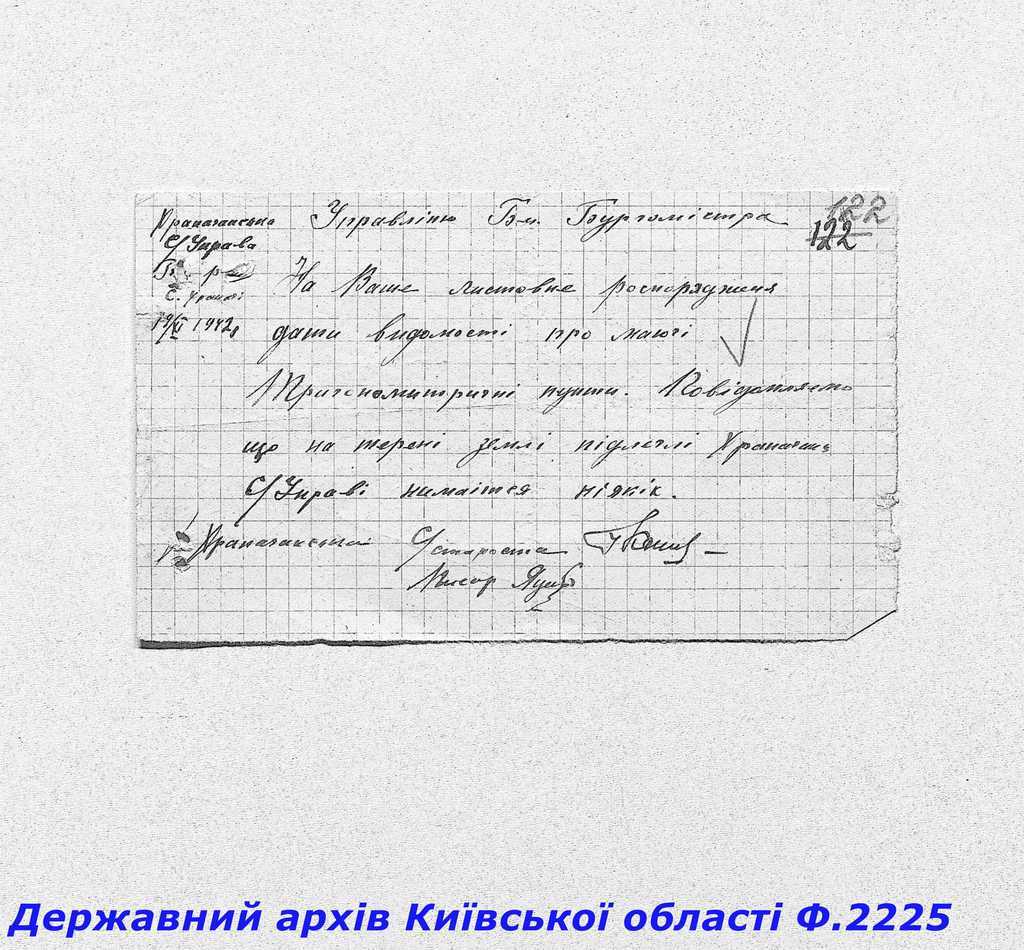 Храпачанська
С/Управа
Б.
с. Храпачі
19/XI 1942р
122
122
Управлінню Б-ц. Бургомістра
На Ваше листовне роспорядження
дати видомості про маючі
Тригономитричні пункти. Повідомляємо
що на терені землі підлеглі Храпачанс
С/Управі нимаіться ніякік.
Храпачанський С/староста
Писар
Державний архів Київської області Ф.2225